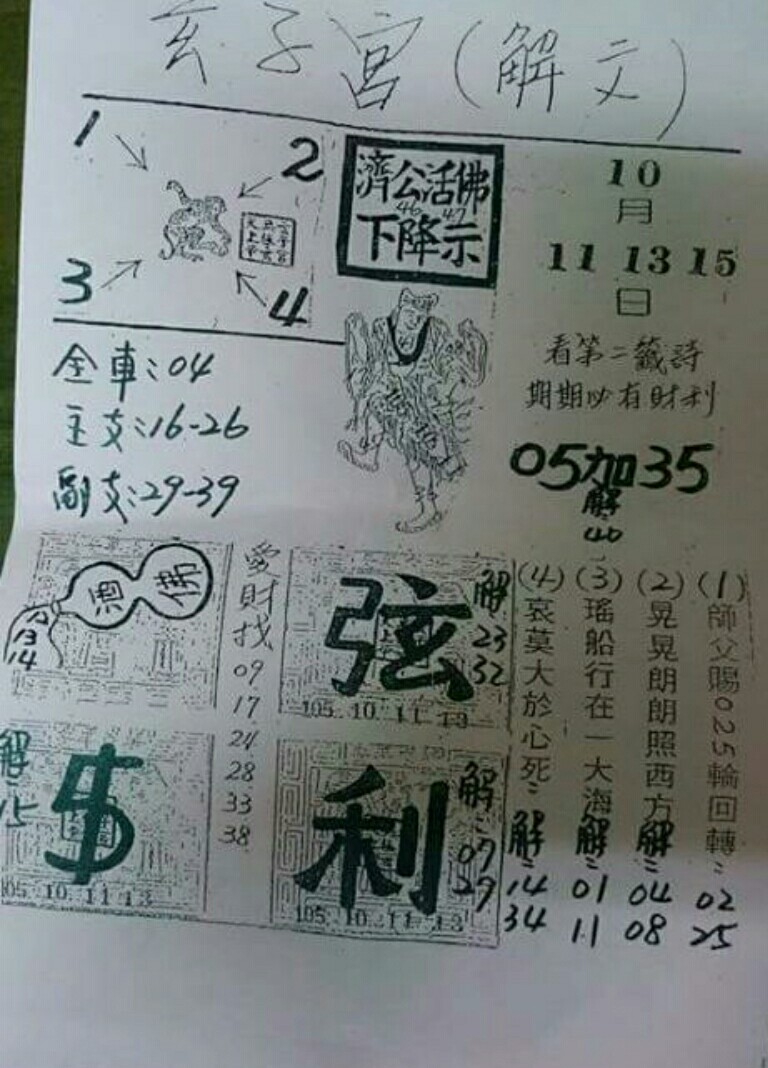 玄子宮(解文)
1
2
3
4
濟公活佛
46 47
下降示
10
月
11 13 15
日
看第二籤詩
期期必有財利
05加35
解:
40
全車:04
主支:16-26
副支:29-39
佛
13
14
愛財找
09
17
24
28
33
38
弦
解:
23
32
105. 10. 11 13
$
解:
15
105. 10. 11 13
利
解:
07
29
105. 10. 11 13
(1)師父賜025輪回轉:
02
25
(2)晃晃朗朗照西方
解:
04
08
(3)瑤船行在一大海
解:
01
11
(4)哀莫大於心死:
解:
14
34